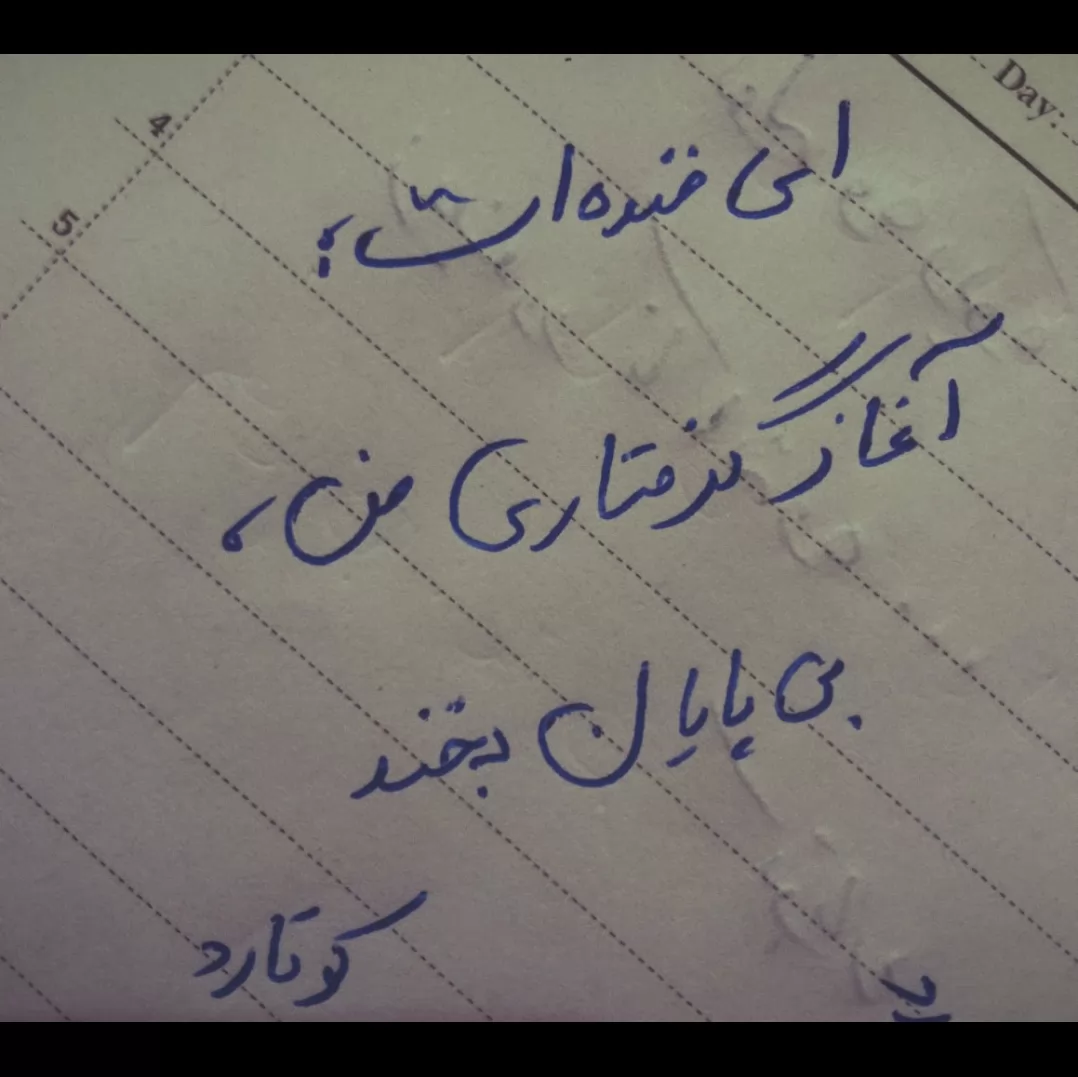 Day:
4
5
ای خنده‌ات؛
آغاز گرفتاری من،
بی پایان بخند
کوتارد